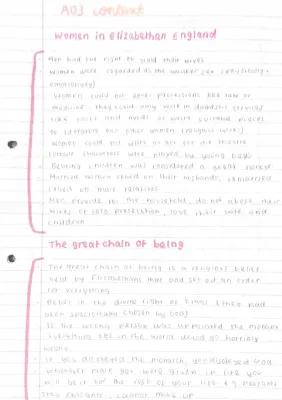 AO3 context
Women in Elizabethan England
- Men had the right to their wives
- Women were regarded as the weaker sex (physically + emotionally)
- Women could not enter professions like law or
medicine. They could only work in domestic service
like cooks and maids or write suitable pieces
to literature for other women (religious works)
- Women could not write or act for the theatre
female characters were played by young boys
- Bearing children was considered a great honour
- Married women relied on their husbands, unmarried
relied on male relatives
- Men: provide for the household, do not abuse their
wives or protection, love their wife and
children
The great chain of being
- The great chain of being is a religious belief
held by Elizabethans that God set out an order
for everything
- Belief in the divine right of kings (they had
been specifically chosen by God)
- If the wrong person was the monarch
everything else in the world would go horribly
wrong.
- If you disobeyed the monarch, you disobeyed God
- Whichever place you were given in life you
will be in for the rest of your life eg peasants
stay peasants, cannot move up